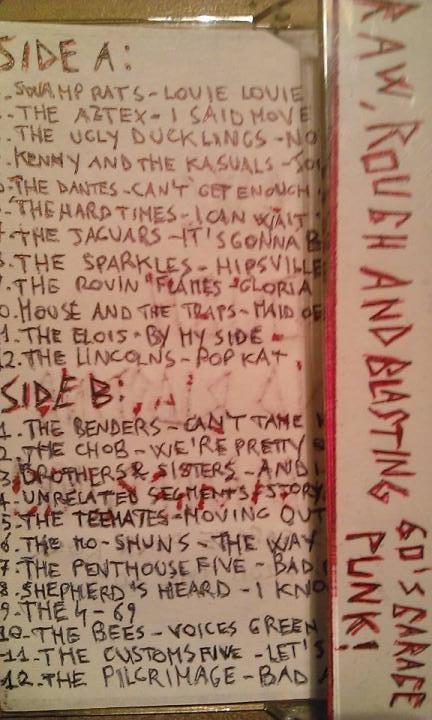 SIDE A:
. SWAMP RATS - LOUIE LOUIE
. THE AZTEX - I SAID MOVE
. THE UGLY DUCKLINGS - NO
. KENNY AND THE KASUALS -
. THE DANTES - CAN'T GET ENOUGH
. THE HARD TIMES - I CAN WAIT
. THE JAGUARS - IT'S GONNA B
. THE SPARKLES - HIPSVILLE
. THE ROVIN' FLAMES - GLORIA
0. MOUSE AND THE TRAPS - MAID OF
1. THE ELOIS - BY MY SIDE
12. THE LINCOLNS - POP KAT
SIDE B:
1. THE BENDERS - CAN'T TAME
2. THE CHOB - WE'RE PRETTY
3. BROTHERS & SISTERS - AND I
4. UNRELATED SEGMENTS - STORY
5. THE TEEMATES - MOVING OUT
6. THE MO-SHUNS - THE WAY
7. THE PENTHOUSE FIVE - BAD
8. SHEPHERD'S HEARD - I KNO
9. THE 4 - 69
10. THE BEES - VOICES GREEN
11. THE CUSTOMS FIVE - LET'S
12. THE PILGRIMAGE - BAD
RAW, ROUGH AND BLASTING 60'S GARAGE
PUNK!